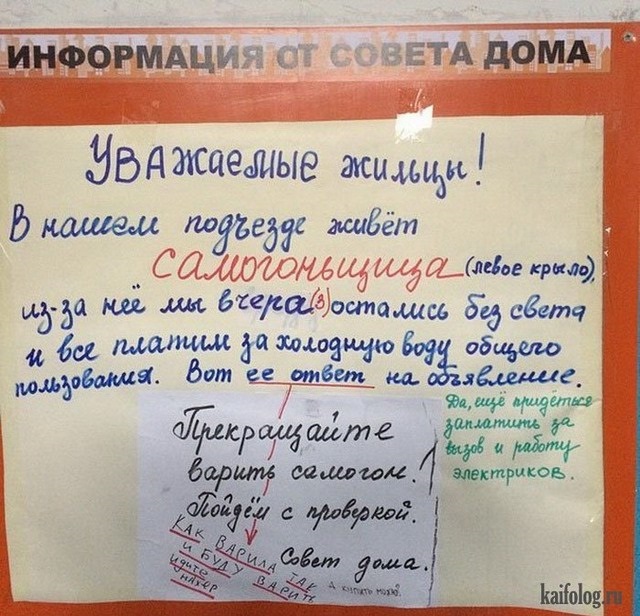 ИНФОРМАЦИЯ ОТ СОВЕТА ДОМА
Уважаемые жильцы!
В нашем подъезде живёт
самогоньщица (левое крыло),
из-за неё мы вчера(3) остались без света
и все платим за холодную воду общего
пользования. Вот ее ответ на объявление.
Да, ещё придёться
заплатить за
вызов и работу
электриков.
Прекращайте
варить самогон!
Пойдём с проверкой.
Совет дома.
КАК ВАРИЛА ТАК
И БУДУ ВАРИТЬ
ИДИТЕ
НАХЕР
А купить можно?
kaifolog.ru